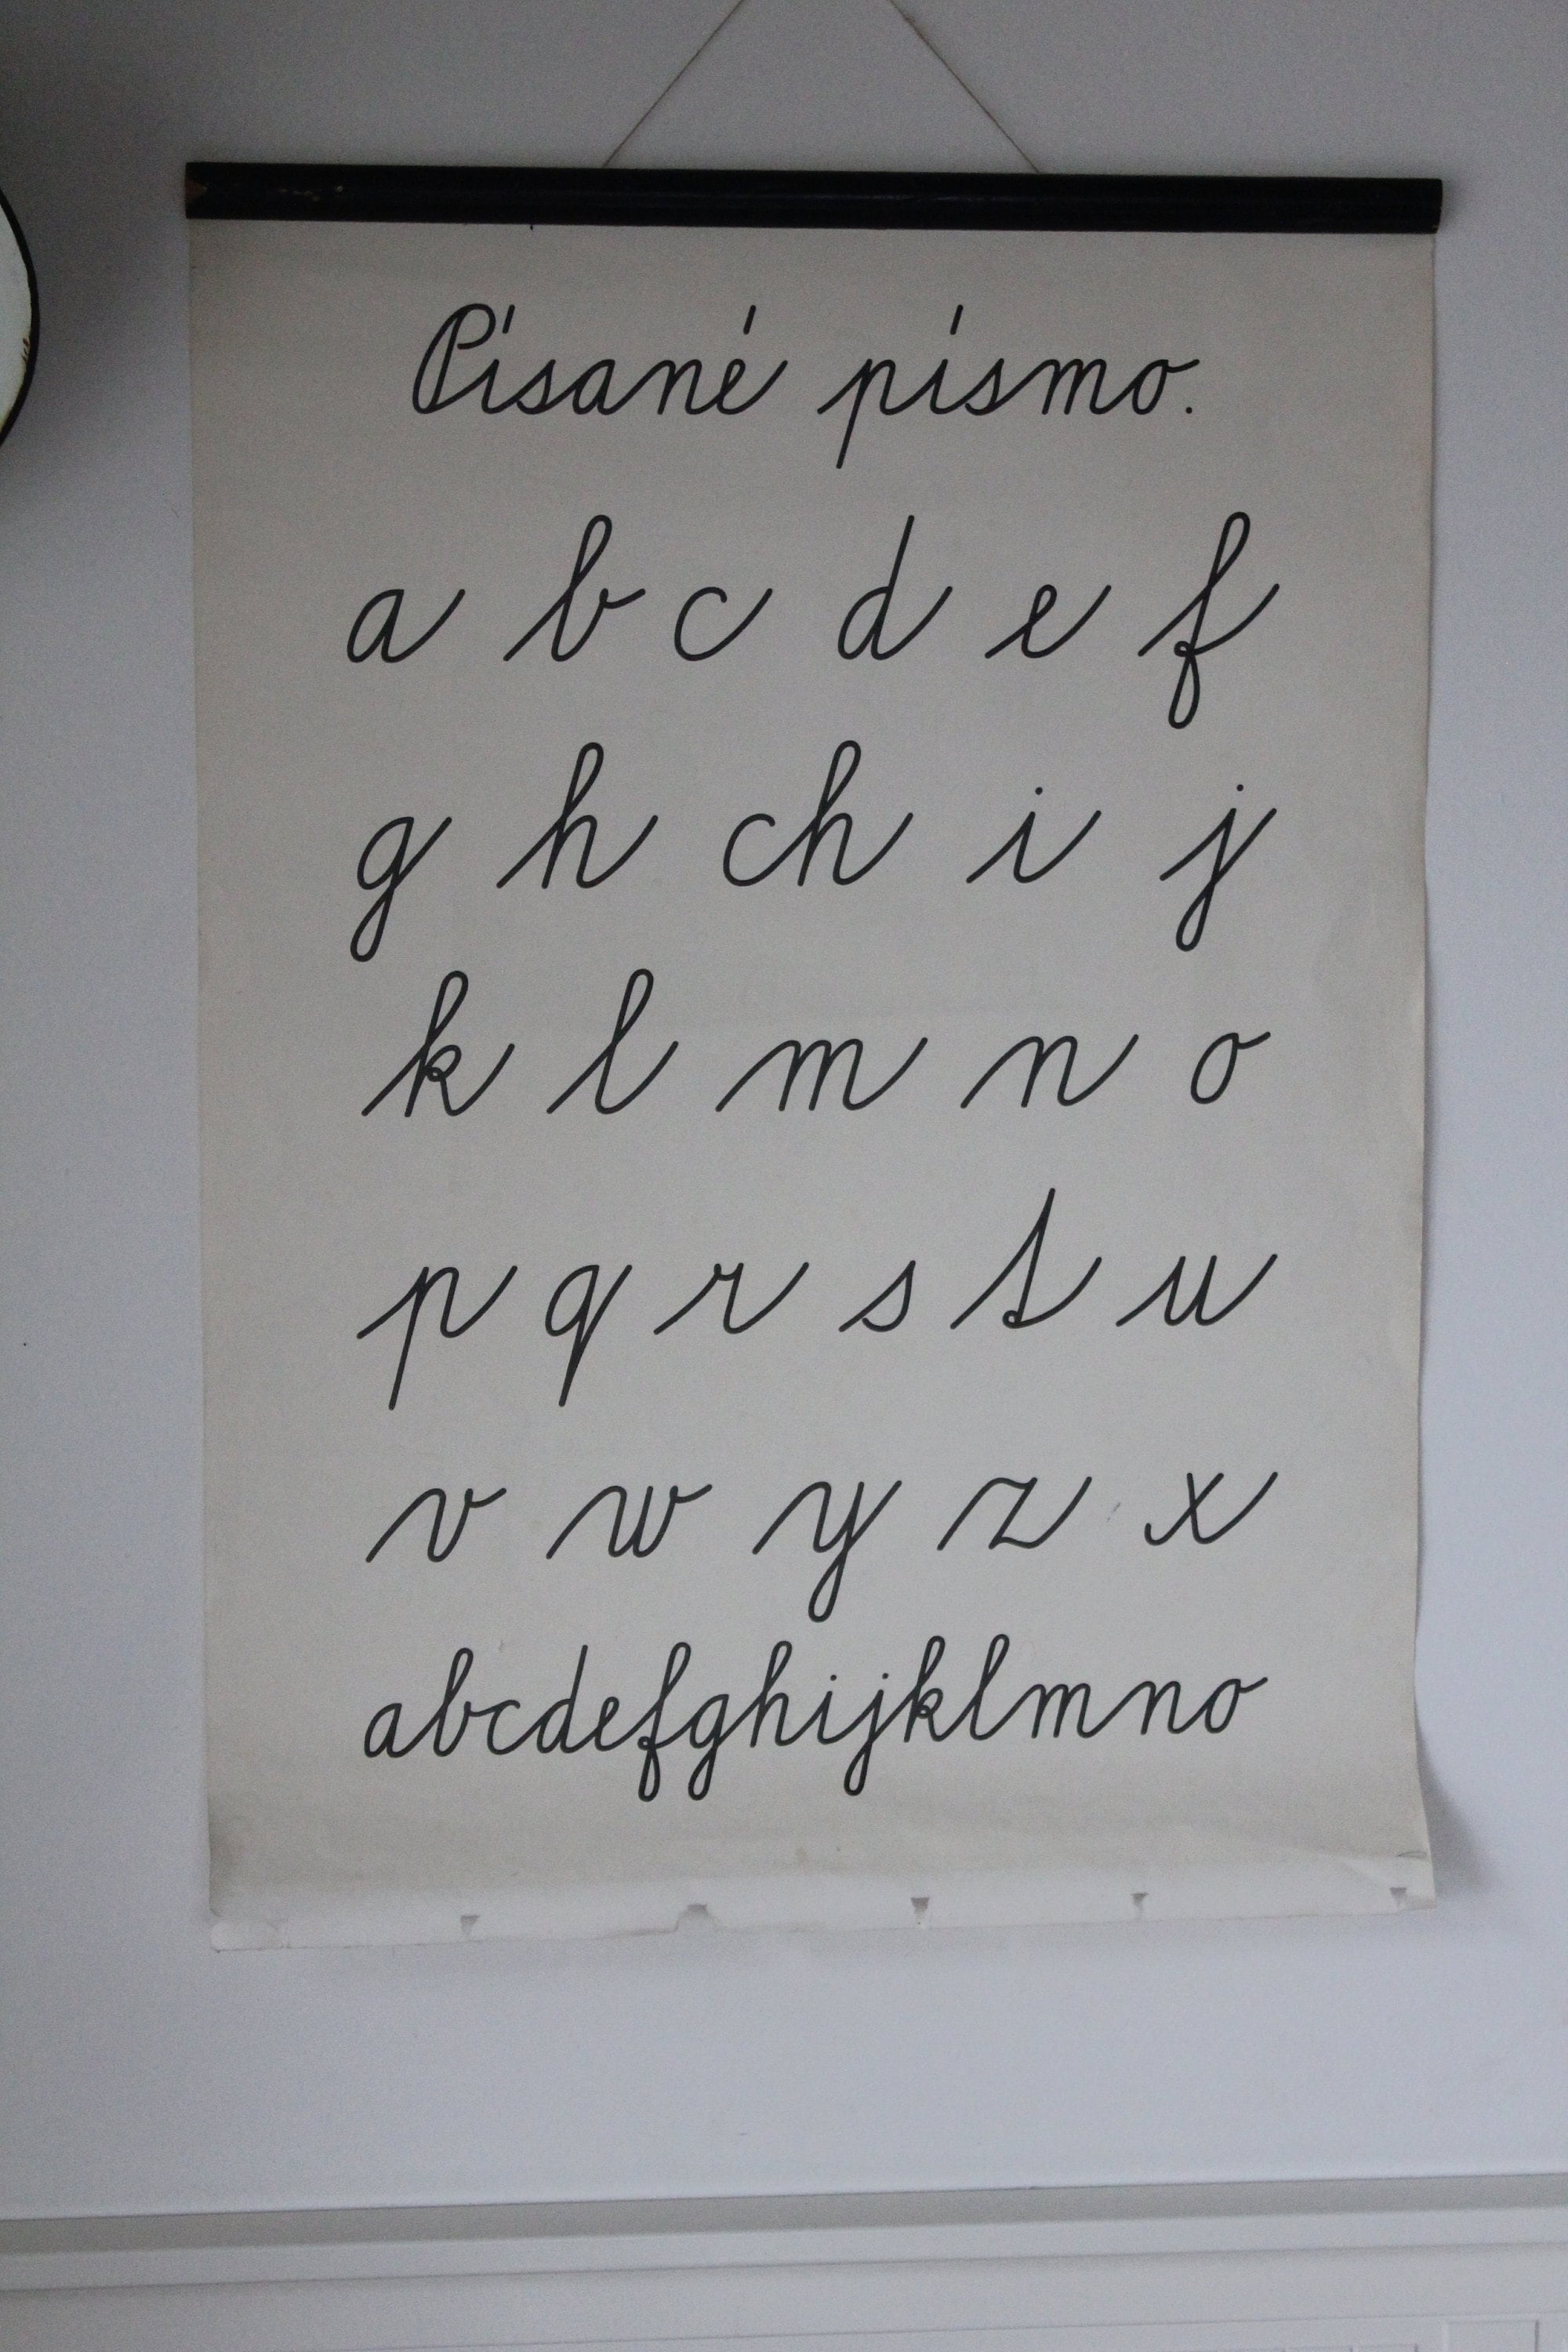 Písané písmo.
a b c d e f
g h ch i j
k l m n o
p q r s t u
v w y z x
abcdefghijklmno